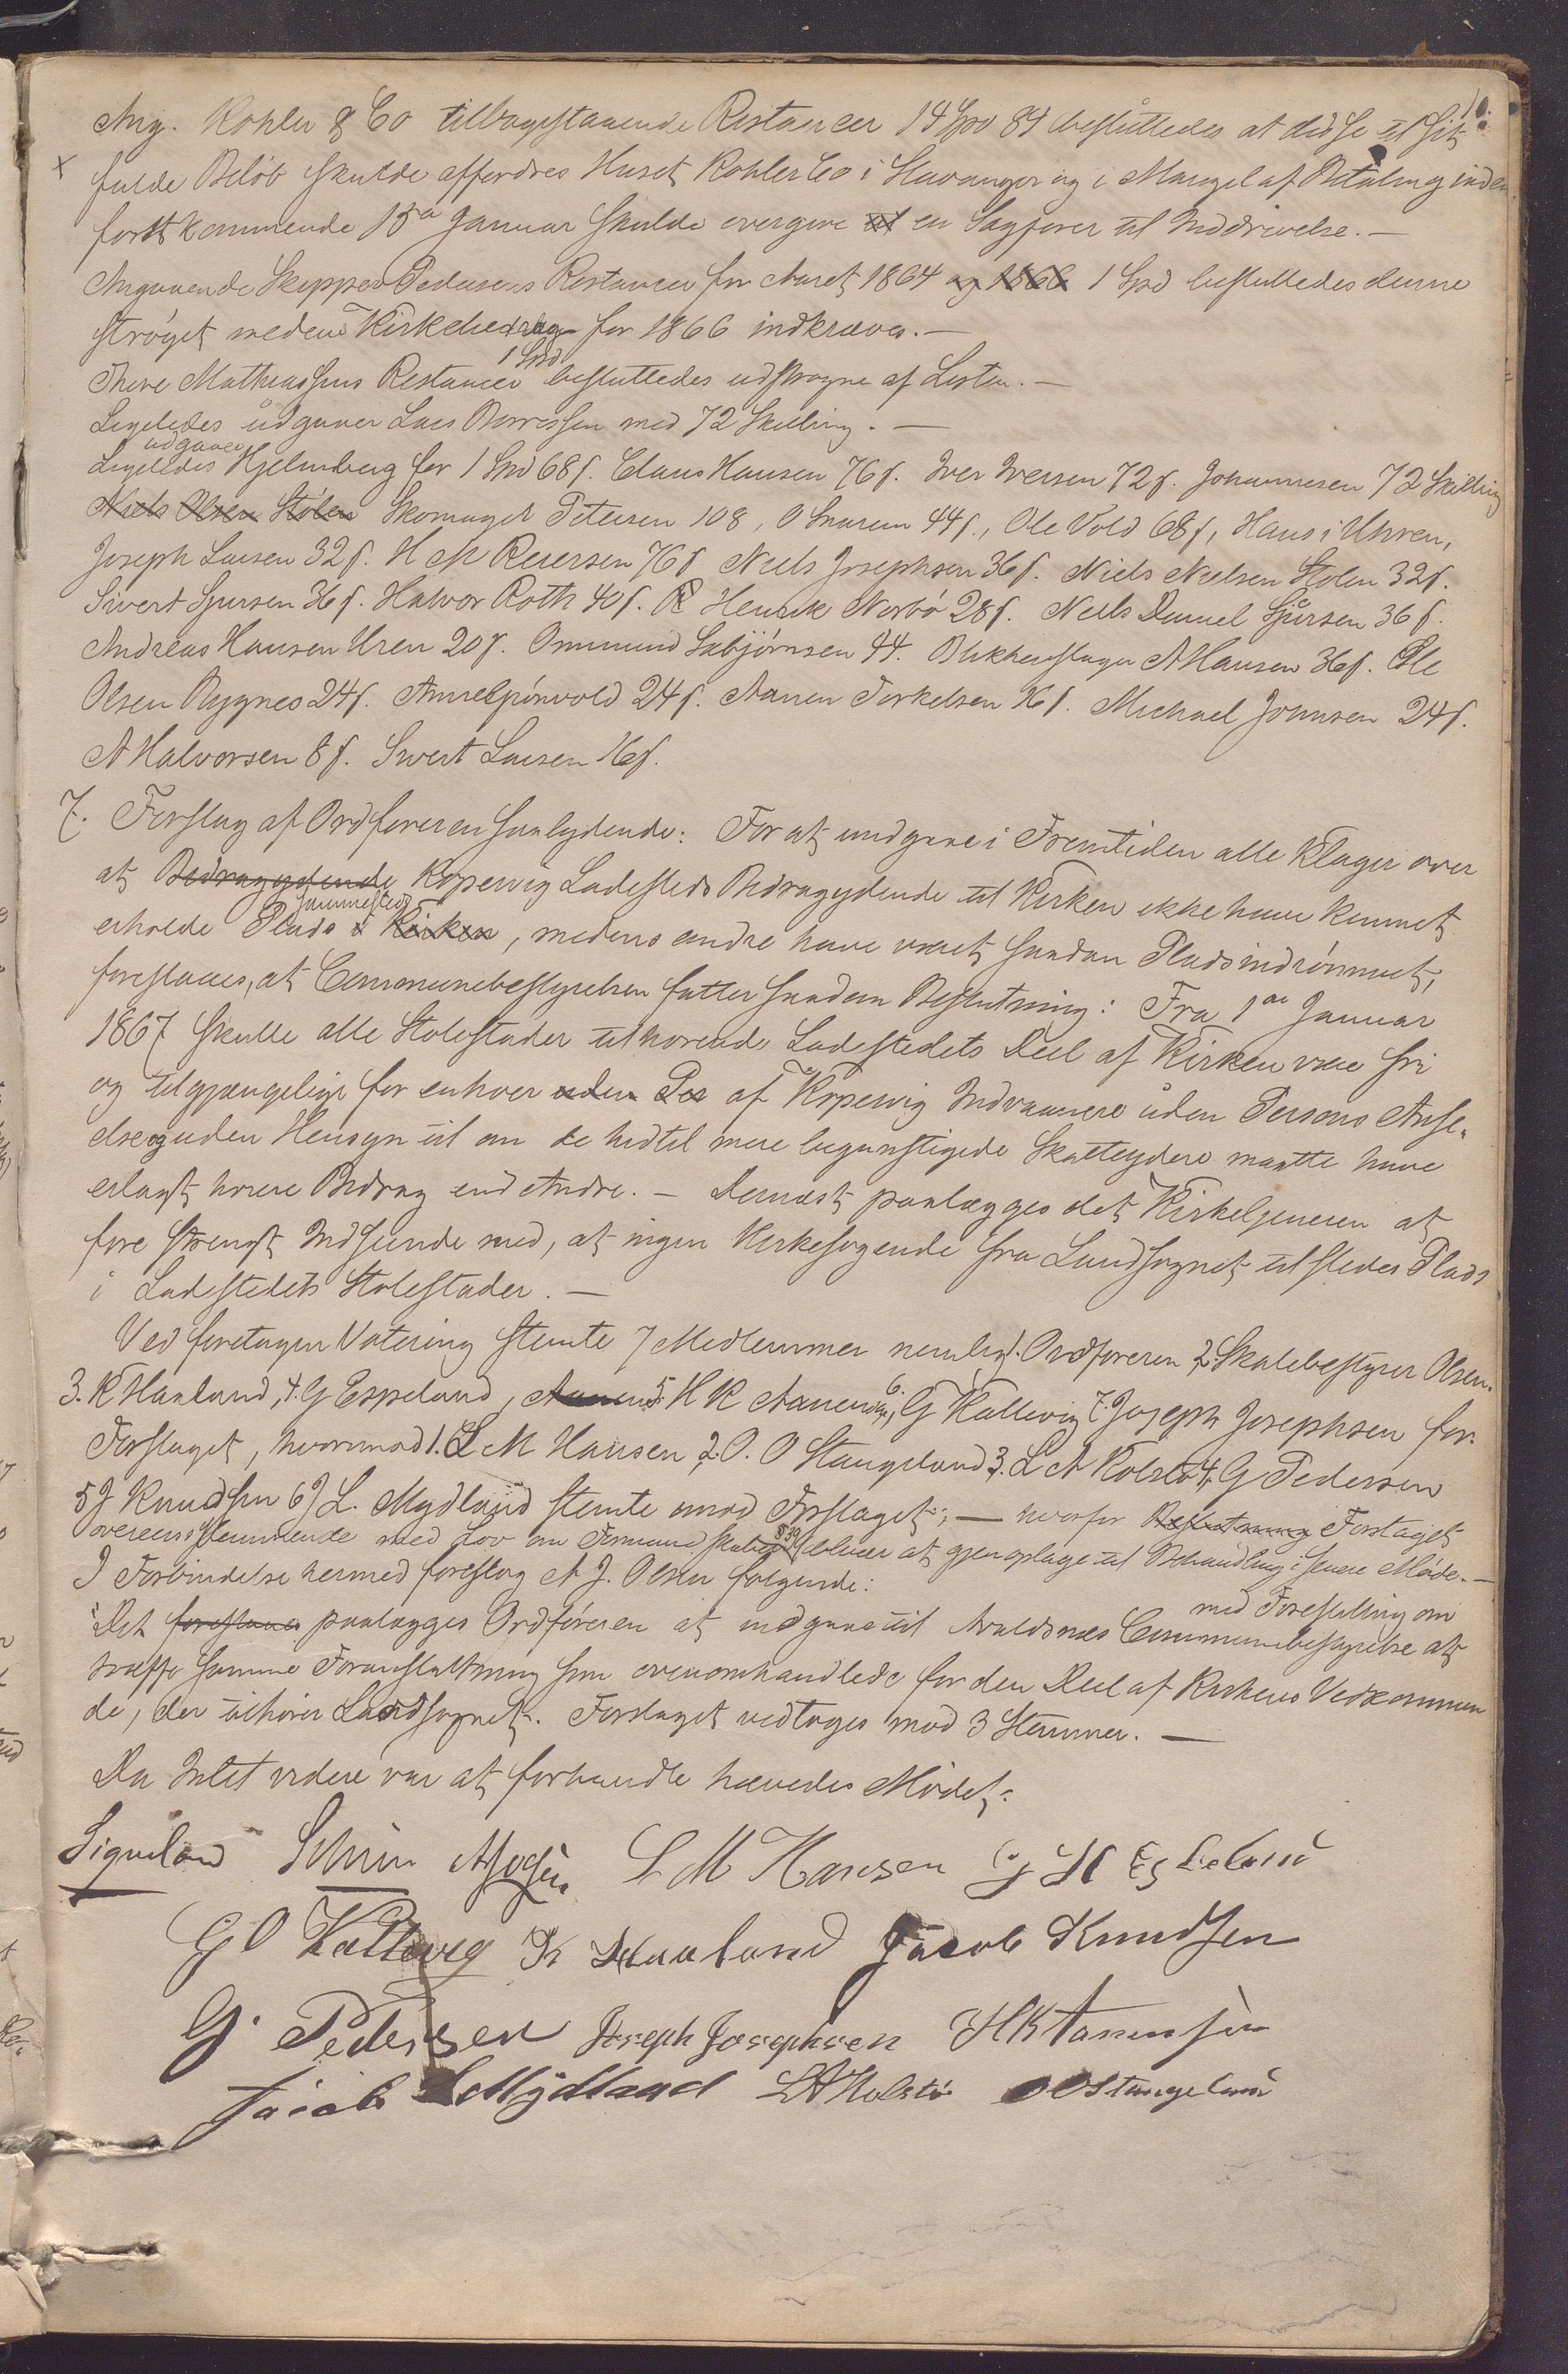 10.
Ang. Kohler & Co tilbagestaaende Restancer 14 Spd 84 besluttedes at disse til sit
x fulde Beløb skulde affordres Huset Kohler Co i Stavanger og i Mangel af Betaling inden
førstkommende 15de Januar skulde overgives en Sagfører til Inddrivelse. —
Angaaende Skipper Pedersens Restancer for Aaret 1864 og 1866 1 Spd besluttedes denne
strøget medens Kirkebidrag for 1866 indkræves. —
1 Spd
There Mathiassens Restancer besluttedes udstrøgne af Listen. —
Ligeledes udgaaer Lars Borressen med 72 Skilling. —
udgaaer
Ligeledes Hjelmberg for 1 Spd 68 s. Claus Hansen 76 s. Iver Iversen 72 s. Johannesen 72 Skilling
Niels Olsen Stølen Skomager Petersen 108, O Snarem 44 s., Ole Vold 68 s, Hans i Uhren,
Joseph Larsen 32 s. H M Reiersen 76 s Niels Josephsen 36 s. Niels Nielsen Stolen 32 s.
Sivert Sjursen 36 s. Halvor Roth 40 s. R Henrik Norbø 28 s. Neils Daniel Sjursen 36 s.
Andreas Hansen Uren 20 s. Ommund Sabjørnsen 44. Blikkenslager A Hansen 36 s. Ole
Olsen Bygnes 24 s. Anne Spónvold 24 s. Aanen Torkelsen 16 s. Michael Johnsen 24 s.
A Halvorsen 8 s. Sivert Larsen 16 s.
7. Forslag af Ordføreren saalydende: For at undgaae i Fremtiden alle Klager over
at Bidragydende Kopervig Ladesteds Bidragydende til Kirken ikke have kunnet
sammesteds
erholde Plads i Kirken, medens andre have været saadan Plads indrømmet,
foreslaaes, at Communebestyrelsen fatter saadan Beslutning: Fra 1de Januar
1867 skulle alle Stolestader tilhørende Ladestedets Deel af Kirken være fri
og tilgjængelige for enhver uden Per af Kopervig Indvaanere uden Persons Anse-
else og uden Hensyn til om de hidtil mere begunstigede Skatteydere maatte have
erlagt høiere Bidrag end Andre. — Dernæst paalægges det Kirketjeneren at
føre strengt Indseende med, at ingen Kirkesøgende fra Landsognet tilstedes Plads
i Ladestedets Stolestader. —
Ved foretagen Votering stemte 7 Medlemmer nemlig 1. Ordføreren 2. Skolebestyrer Olsen
3. K Haaland, 4. G Espeland, Aanens 5. H K Aanensen, 6. G Kallevig 7. Joseph Josephsen for
Forslaget, hvorimod 1. L M Hansen 2. O. O Stangeland 3. L A Kolstø 4. G Pedersen
5 J Knudsen 6 J L. Mydland stemte imod Forslaget; — hvorfor Beslutning Forslaget
overeensstemmende med Lov om Formandskaber § 39 bliver at gjenoptage til Behandling i senere Møde. —
I Forbindelse hermed foreslog A J. Olsen følgende:
med Forestilling om
"Det foreslaaes paalægges Ordføreren at indgaae til Avaldsnes Communebestyrelse at
træffe samme Foranstaltning som ovenomhandlede for den Deel af Kirkens Vedkommen
de, der tilhører Landsognet. Forslaget vedtoges mod 3 Stemmer. —
Da Intet videre var at forhandle hævedes Mødet.
L M Hansen G H Espeland
G O Kallevig K Haaland Jacob Knudsen
G. Pedersen Joseph Josephsen H K Aanensen
Jacob L Mydland L A Kolstø O O Stangeland